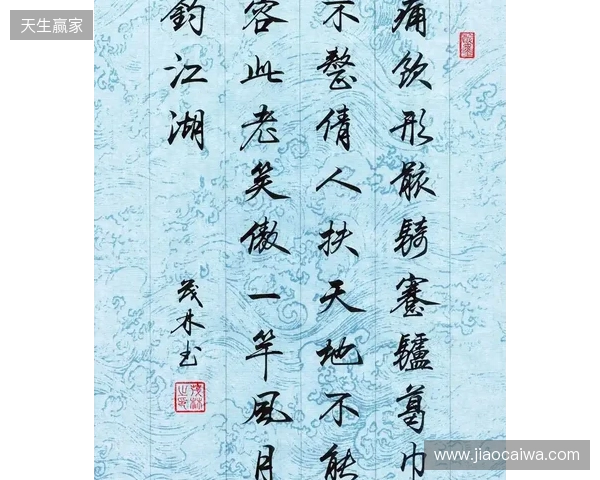 天生赢家
痛饮形骸騎蹇驢葛巾
不整倩人扶天地不能
容此老笑傲一竿風月
釣江湖
茂林书
www.jiaocaiwa.com